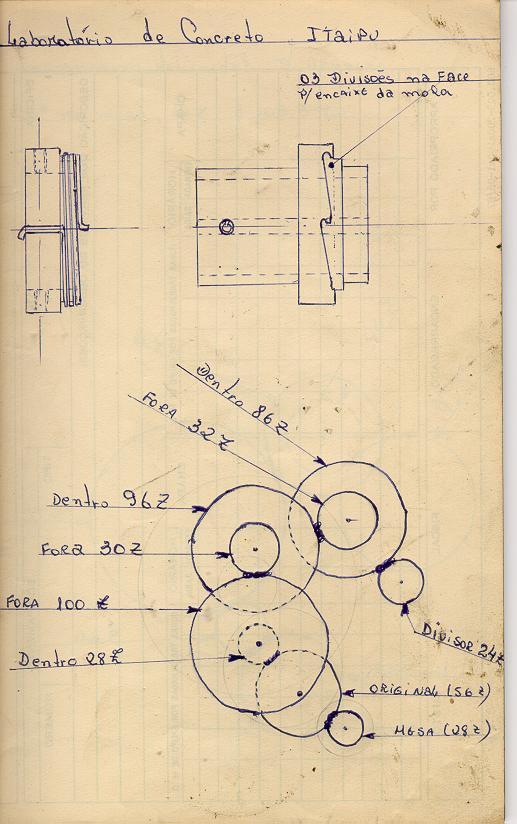 Laboratório de Concreto ITAIPU
03 Divisões na Face
p/encaixe da mola
Dentro 86Z
FORA 32Z
Dentro 96Z
FORA 30Z
FORA 100 Z
Dentro 28Z
Divisor 24Z
ORIGINAL (56Z)
MESA (28Z)